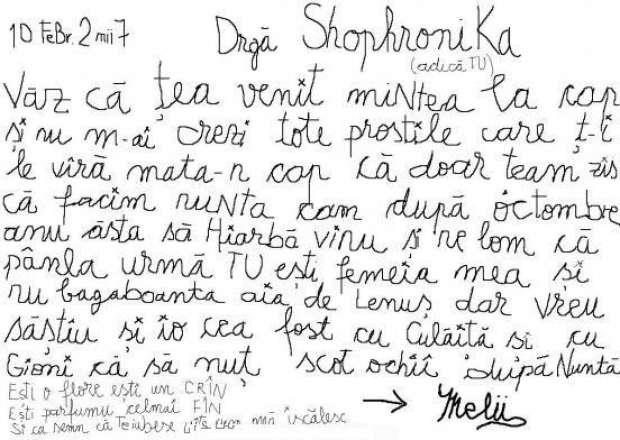 10 FeBr. 2 mii7
Drgă ShophroniKa
(adică TU)
Văz că țea venit miNtea la cap
și nu m-ai crezi tote prostile care ț-i
le vîră mata-n cap că doar team zis
că facim nuNta cam după octombre
anu ăsta să Hiarbă vinu și ne lom că
pânla urmă TU ești femeia mea și
nu bagaboanta aia de Lenuș dar vreu
săștiu și io cea fost cu Culăită și cu
Gioni că să nuț scot ochii după Nuntă
Ești o flore ești un CRIN
Ești parfumu celmai FIN
Și ca semn că Te iubesc măn iscălesc
→ Melii